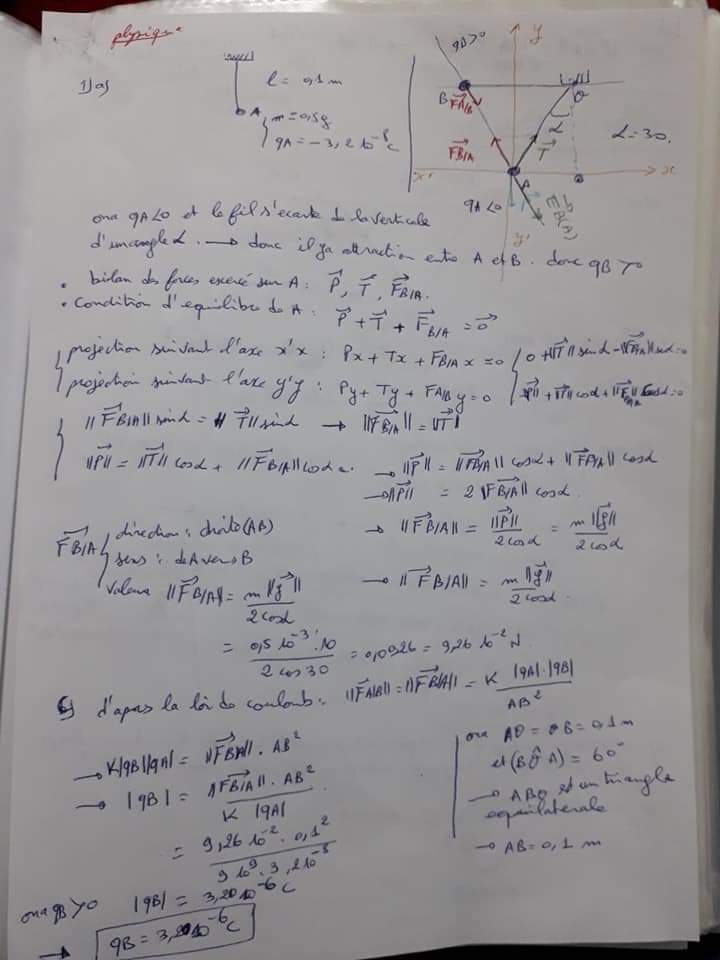 physique
1) a)
l = 0,1 m
A
m = 0,5g
qA = -3,2 10⁻⁸C
qB>0
y
B
O
F A/B
F B/A
α
T
α = 30.
x'
x
A
qA<0
E B(A)
y'
ona qA<0 et le fil s'ecarte de la verticale
d'un angle α. → donc il ya attraction entre A et B. donc qB>0
• bilan des forces exercé sur A : P, T, F B/A.
• Condition d'equilibre de A : P + T + F B/A = 0
projection suivant l'axe x'x : Px + Tx + F B/A x = 0
0 + ||T|| sinα - ||F B/A|| sinα = 0
projection suivant l'axe y'y : Py + Ty + F A/B y = 0
-||P|| + ||T|| cosα + ||F B/A|| cosα = 0
||F B/A|| sinα = ||T|| sinα → ||F B/A|| = ||T||
||P|| = ||T|| cosα + ||F B/A|| cosα
→ ||P|| = ||F B/A|| cosα + ||F B/A|| cosα
→ ||P|| = 2 ||F B/A|| cosα.
→ ||F B/A|| = ||P|| / 2cosα = m ||g|| / 2cosα
→ ||F B/A|| = m ||g|| / 2cosα.
F B/A
direction : droite (AB)
sens : de A vers B
valeur ||F B/A|| = m ||g|| / 2cosα
= 0,5 10⁻³ . 10 / 2 cos 30 = 0,0926 = 9,26 10⁻² N
d'apres la loi de coulomb : ||F A/B|| = ||F B/A|| = K |qA|.|qB| / AB²
→ K|qB||qA| = ||F B/A|| . AB²
→ |qB| = ||F B/A|| . AB² / K |qA|
= 9,26 10⁻² . 0,1² / 9 10⁹ . 3,2 10⁻⁸
ona AO = OB = 0,1 m
et (BÔA) = 60°
→ ABO est un triangle
equilaterale
→ AB = 0,1 m
ona qB>0 |qB| = 3,20 10⁻⁶ C
→ qB = 3,20 10⁻⁶ C